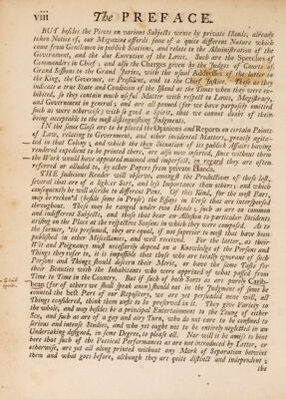 viii The PREFACE.
BUT besides the Pieces on various Subjects wrote by private Hands, already
taken Notice of, our Magazine affords some of a quite different Nature which
come from Gentlemen in publick Stations, and relate to the Administration of the
Government, and the due Execution of the Laws. Such are the Speeches of
Commanders in Chief; and also the Charges given by the Judges of Courts of
Grand Sessions to the Grand Juries, with the usual Addresses of the latter to
the King, the Governor, or President, and to the Chief Justice. These as they
indicate a true State and Condition of the Island at the Times when they were ex-
hibited, so they contain much useful Matter with respect to Laws, Magistracy,
and Government in general; and are all penned (for we have purposely omitted
such as were otherwise) with so good a Spirit, that we cannot doubt of their
being acceptable to the most distinguishing Judgments.
IN the same Class are to be placed the Opinions and Reports on certain Points
of Law, relating to Government, and other incidental Matters, greatly agita-
ted in that Colony; and which the then Situation of its publick Affairs having
rendered expedient to be printed there, are also now inserted, since without them
the Work would have appeared maimed and imperfect, in regard they are often
referred or alluded to, by other Papers from private Hands.
THE judicious Reader will observe, amongst the Productions of these last,
several that are of a lighter Sort, and less Importance than others; and which
consequently he will ascribe to different Pens. Of this Kind, for the most Part,
may be reckon'd (beside some in Prose) the Essays in Verse that are interspersed
throughout. These may be ranged under two Heads, such as are on common
and indifferent Subjects, and those that bear an Allusion to particular Incidents
arising on the Place at the respective Seasons in which they were composed. As to
the former, 'tis presumed, they are equal, if not superior to most that have been
published in other Miscellanies, and well received. For the latter, as their
Wit and Poignancy must necessarily depend on a Knowledge of the Persons and
Things they refer to, it is impossible that those who are totally ignorant of such
Persons and Things should discern their Merit, or have the same Taste for
their Beauties with the Inhabitants who were apprized of what passed from
Time to Time in the Country. But if such of both Sorts as are purely Carib-
bean (for of others we shall speak anon) should not in the Judgment of some be
counted the best Part of our Repository, we are yet persuaded none will, all
Things considered, think them unfit to be preserved in it. They give Variety to
the whole, and may besides be a principal Entertainment to the Young of either
Sex, and such as are of a gay and airy Turn, who do not care to be confined to
serious and intense Studies, and who yet ought not to be entirely neglected in an
Undertaking designed, in some Degree, to please all. Nor will it be amiss to hint
here that such of the Poetical Performances as are not introduced by Letter, or
otherwise, are yet all along printed without any Mark of Separation between
them and what goes before, although they are quite distinct and independent;
the